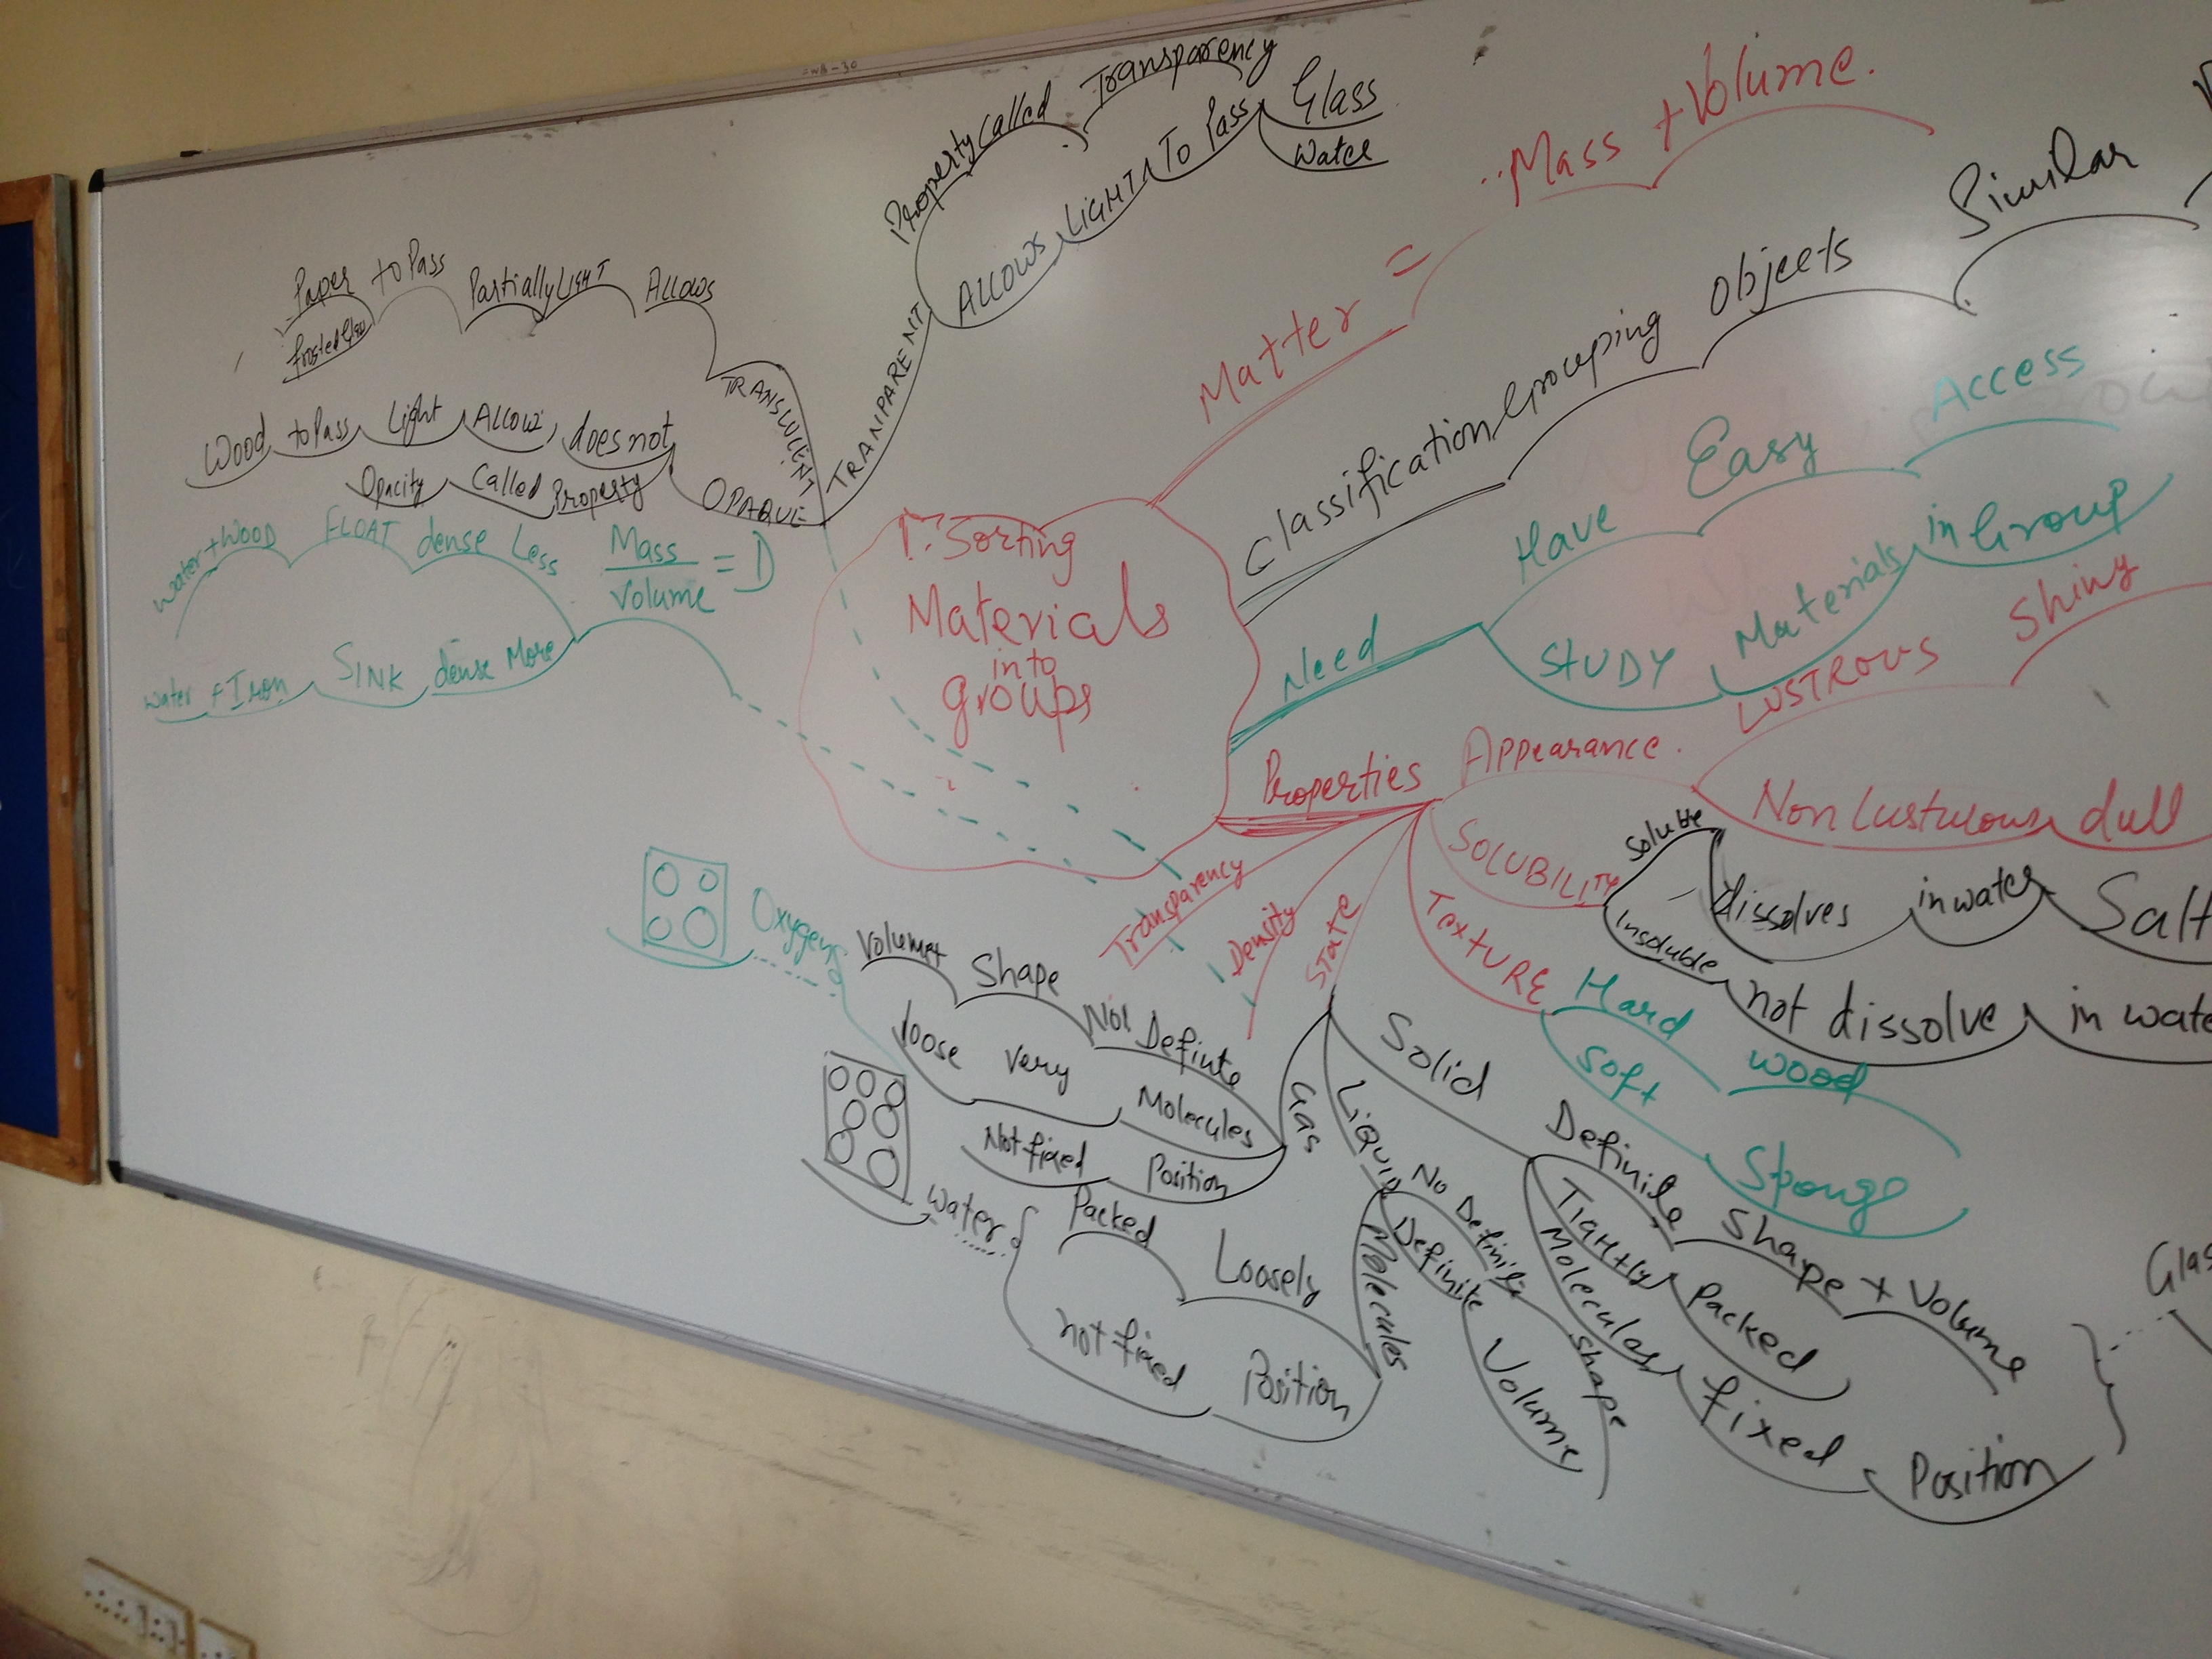 Property called Transparency
ALLOWS LIGHT To Pass
Glass
Water
TRANPARENT
Paper to Pass Partially LIGHT Allows
TRANSLUCENT
Wood to Pass Light Allow does not
Opacity Called Property
OPAQUE
Matter = Mass + Volume.
Classification Grouping objects Similar
Need
Have Easy Access
STUDY Materials in Group
1. Sorting
Materials
into
groups
water + WOOD FLOAT dense Less
Mass
Volume = D
water + Iron SINK dense More
Properties
Appearance.
LUSTROUS Shiny
Non Lustulous dull
SOLUBILITY
Soluble
dissolves in water Salt
Insoluble
not dissolve in wate
TEXTURE
Hard wood
Soft Sponge
Transparency
Density
State
Solid
Definile Shape + Volume
TIGHtly Packed
Molecules fixed Position
Glas
Liquid
No Definite Shape
Definite Volume
Molecules
Loosely Packed
not fixed Position
water
Gas
Not Definte Shape Volume
Molecules very loose
Not fixed Position
Oxygen